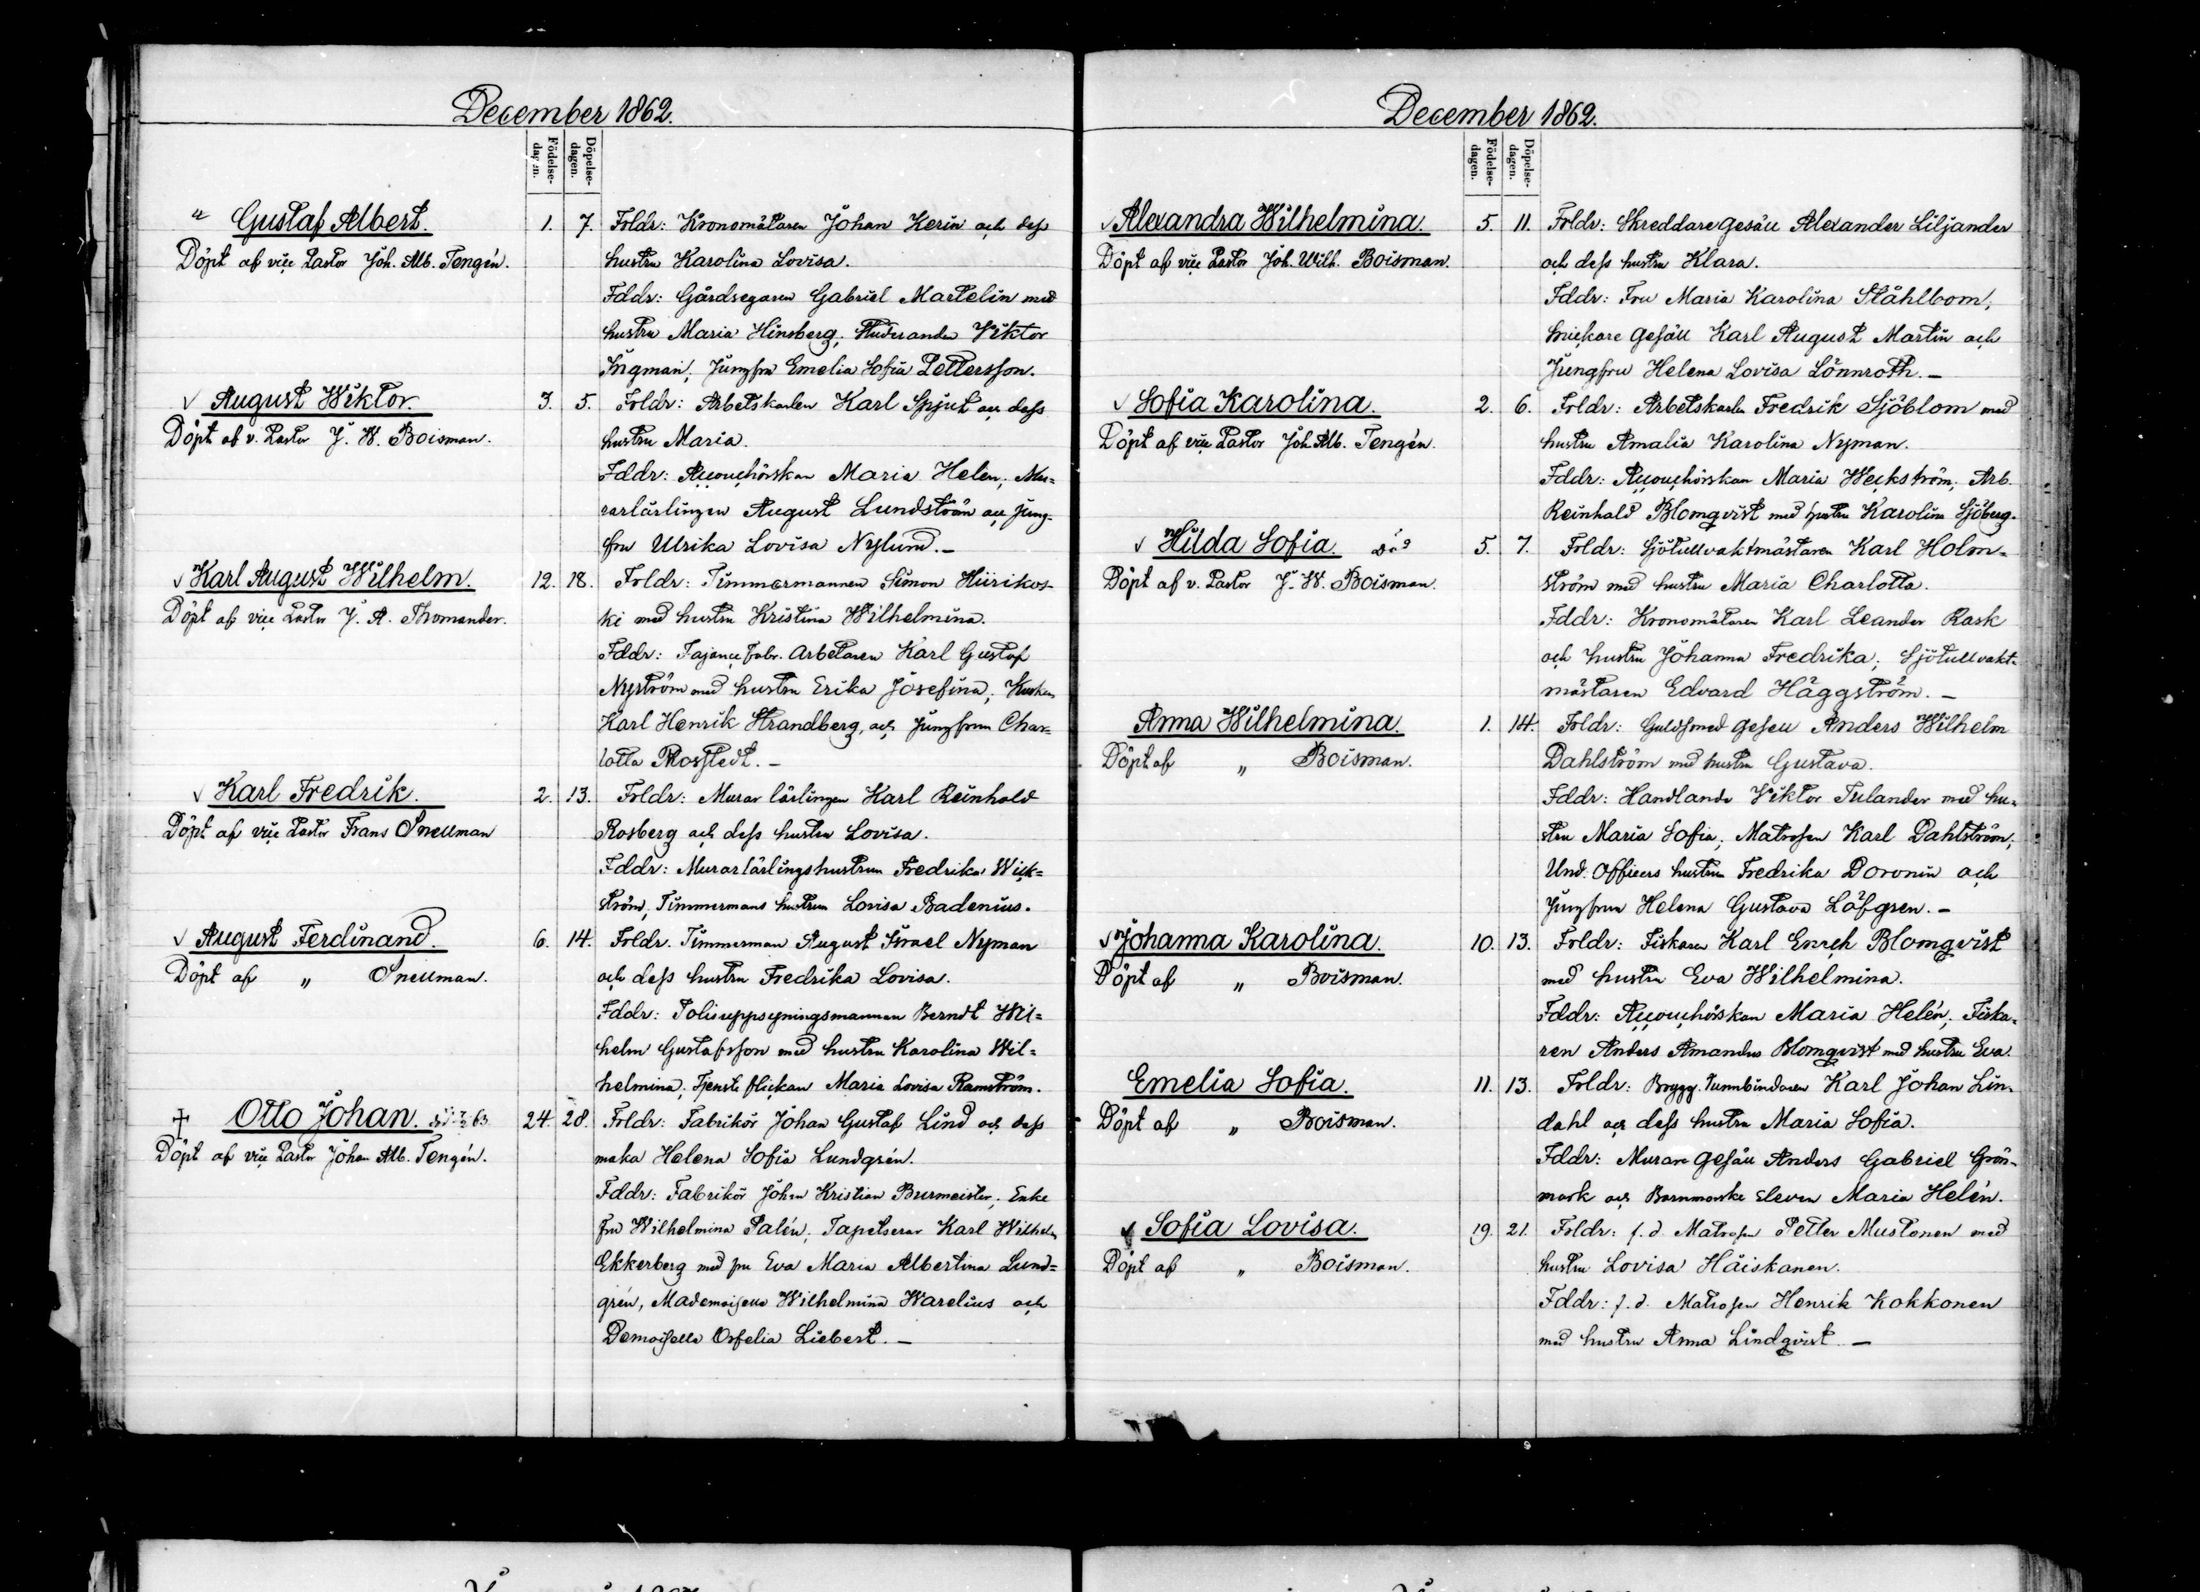 December 1862.
Födelse-dagen.
Döpelse-dagen.
" Gustaf Albert. 1. 7. Foldr: Kronomätaren Johan Kerin och dess
Döpt af vice Pastor Joh. Alb. Tengén. hustru Karolina Lovisa.
Fddr: Gårdsegaren Gabriel Martelin med
hustru Maria Hinsberg; Studeranden Viktor
Ingman; Jungfru Emelia Sofia Pettersson.
√ August Wiktor. 3. 5. Foldr: Arbetskarlen Karl Spjut och dess
Döpt af v. Pastor J. W. Boisman. hustru Maria.
Fddr: Accouchörskan Maria Helen; Mu=
rarlärlingen August Lundström och Jung-
fru Ulrika Lovisa Nylund. –
√ Karl August Wilhelm. 12. 18. Foldr: Timmermannen Simon Hiirikos-
Döpt af vice Pastor J. A. Thomander. ki med hustru Kristina Wilhelmina.
Fddr: Fajance fabr. Arbetaren Karl Gustaf
Nyström med hustru Erika Josefina; Kusken
Karl Henrik Strandberg, och Jungfrun Char=
lotta Mosstedt. –
√ Karl Fredrik. 2. 13. Foldr: Murar lärlingen Karl Reinhold
Döpt af vice Pastor Frans Snellman Rosberg och dess hustru Lovisa.
Fddr: Murarlärlingshustrun Fredrika Wick=
ström; Timmermans hustrun Lovisa Badenius.
√ August Ferdinand. 6. 14. Foldr. Timmerman August Israel Nyman
Döpt af „ Snellman. och dess hustru Fredrika Lovisa.
Fddr: Polisuppsyningsmannen Berndt Wil=
helm Gustafsson med hustru Karolina Wil=
helmina; Tjenste flickan Maria Lovisa Ramström.
† Otto Johan. 24. 28. Foldr: Fabrikör Johan Gustaf Lind och dess
Döpt af vice Pastor Johan Alb. Tengén. maka Helena Sofia Lundgrén.
Fddr: Fabrikör Johan Kristian Burmeister; Enke
fru Wilhelmina Palén; Tapetserar Karl Wilhelm
Ekkerberg med fru Eva Maria Albertina Lund=
grén, Mademoiselle Wilhelmina Warelius och
Demoiselle Orfelia Liebert. –
December 1862.
Födelse-dagen.
Döpelse-dagen.
√ Alexandra Wilhelmina. 5. 11. Foldr: Skreddare gesäll Alexander Liljander
Döpt af vice Pastor Joh. Wilh. Boisman. och dess hustru Klara.
Fddr: Fru Maria Karolina Ståhlbom;
Snickare gesäll Karl August Martin och
Jungfru Helena Lovisa Lönnroth. –
√ Sofia Karolina. 2. 6. Foldr: Arbetskarlen Fredrik Sjöblom med
Döpt af vice Pastor Joh. Alb. Tengén. hustru Amalia Karolina Nyman.
Fddr: Accouchörskan Maria Weckström; Arb.
Reinhold Blomqvist med hustru Karolina Sjöberg.
√ Hilda Sofia. 5. 7. Foldr: Sjötullvaktmästaren Karl Holm=
Döpt af v. Pastor J. W. Boisman. ström med hustru Maria Charlotta.
Fddr: Kronomätaren Karl Leander Rask
och hustru Johanna Fredrika; Sjötullvakt-
mästaren Edvard Häggström. –
Anna Wilhelmina. 1. 14. Foldr: Guldsmed gesell Anders Wilhelm
Döpt af „ Boisman. Dahlström med hustru Gustava.
Fddr: Handlande Viktor Tulander med hu=
stru Maria Sofia; Matrosen Karl Dahlström;
Und. Officers hustrun Fredrika Doronin och
Jungfrun Helena Gustava Löfgren. –
√ Johanna Karolina. 10. 13. Foldr: Fiskaren Karl Enrch Blomqvist
Döpt af „ Boisman. med hustru Eva Wilhelmina.
Fddr: Accouchörskan Maria Helén; Fiska=
ren Anders Amandus Blomqvist med hustru Eva.
Emelia Sofia. 11. 13. Foldr: Brygg. Tunnbindaren Karl Johan Lin=
Döpt af „ Boisman. dahl och dess hustru Maria Sofia.
Fddr: Murare gesäll Anders Gabriel Grön=
mark och Barnmorske eleven Maria Helén.
√ Sofia Lovisa. 19. 21. Foldr: f. d. Matrosen Petter Mustonen med
Döpt af „ Boisman. hustru Lovisa Häiskanen.
Fddr: f. d. Matrosen Henrik Kokkonen
med hustru Anna Lindqvist –